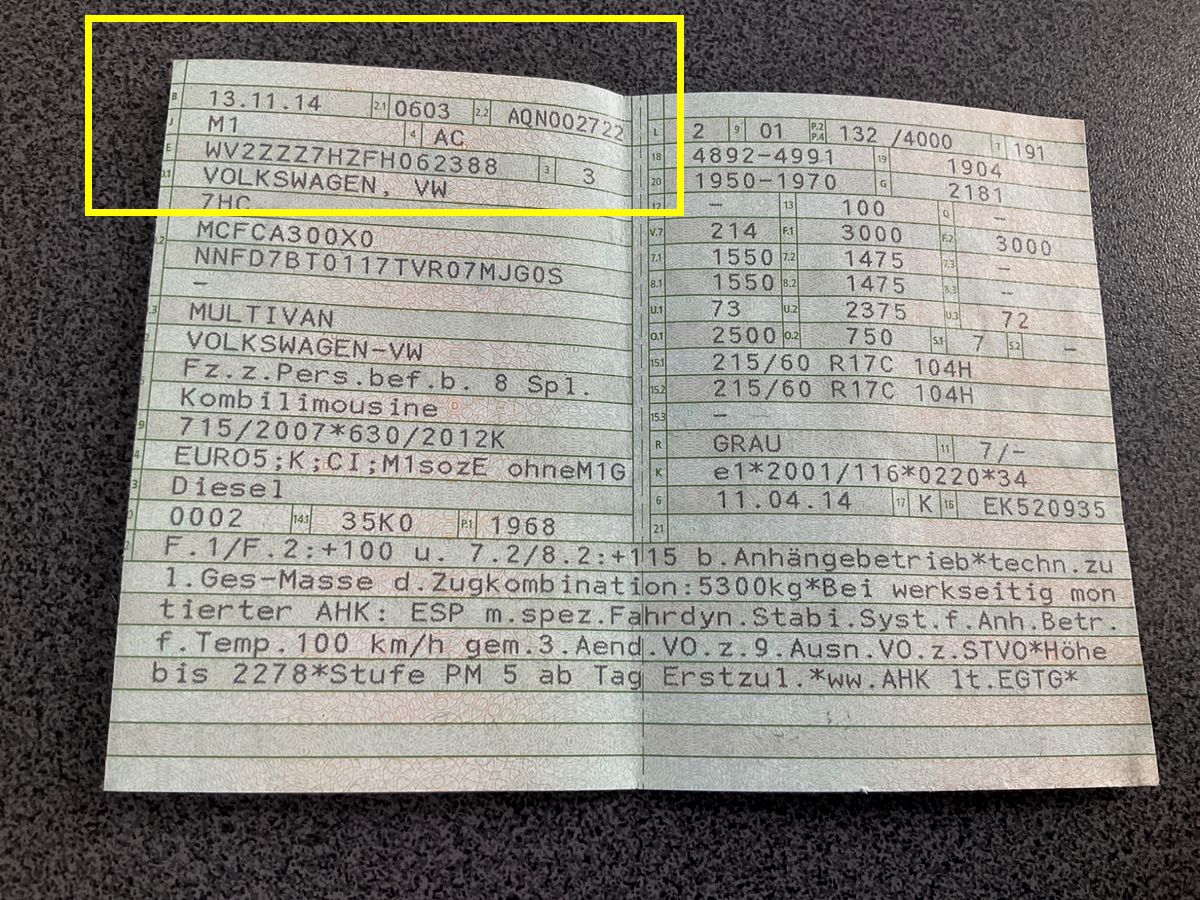 B 13.11.14 2.1 0603 2.2 AQN002722
J M1 4 AC
E WV2ZZZ7HZFH062388 3 3
VOLKSWAGEN, VW
7HC
MCFCA300X0
NNFD7BT0117TVR07MJG0S
–
MULTIVAN
VOLKSWAGEN-VW
Fz.z.Pers.bef.b. 8 Spl.
Kombilimousine
715/2007*630/2012K
EURO5;K;CI;M1sozE ohneM1G
Diesel
0002 14.1 35K0 P.1 1968
L 2 9 01 P.2 P.4 132 /4000 T 191
18 4892-4991 19 1904
20 1950-1970 G 2181
12 – 13 100 Q –
V.7 214 F.1 3000 F.2 3000
7.1 1550 7.2 1475 7.3 –
8.1 1550 8.2 1475 8.3 –
U.1 73 U.2 2375 U.3 72
O.1 2500 O.2 750 S.1 7 S.2 –
15.1 215/60 R17C 104H
15.2 215/60 R17C 104H
15.3 –
R GRAU 11 7/-
K e1*2001/116*0220*34
6 11.04.14 17 K 16 EK520935
21
F.1/F.2:+100 u. 7.2/8.2:+115 b.Anhängebetrieb*techn.zu
l.Ges-Masse d.Zugkombination:5300kg*Bei werkseitig mon
tierter AHK: ESP m.spez.Fahrdyn.Stabi.Syst.f.Anh.Betr.
f.Temp.100 km/h gem.3.Aend.VO.z.9.Ausn.VO.z.STVO*Höhe
bis 2278*Stufe PM 5 ab Tag Erstzul.*ww.AHK lt.EGTG*